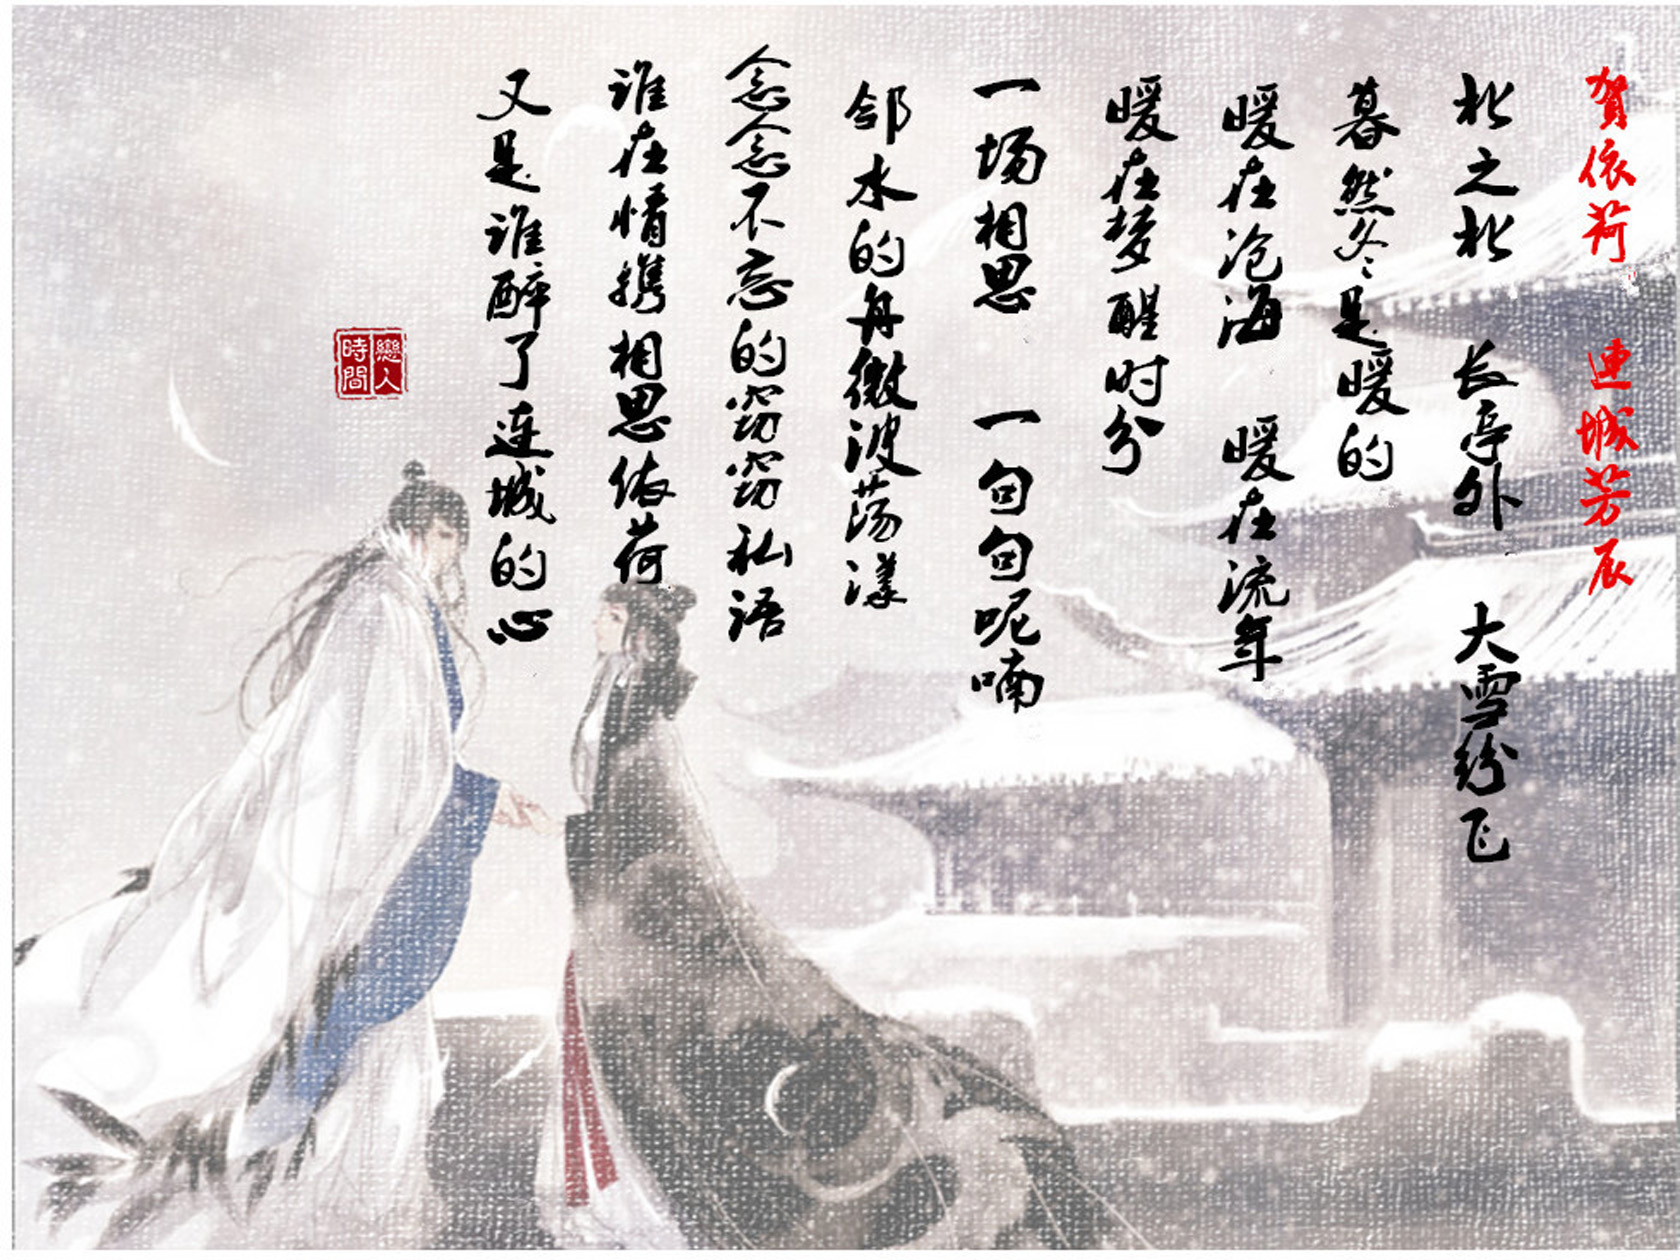 贺依荷 连城芳辰
北之北 长亭外 大雪纷飞
暮然冬是暖的
暖在沧海 暖在流年
暖在梦醒时分
一场相思 一句句呢喃
邻水的舟微波荡漾
念念不忘的窃窃私语
谁在情携相思依荷
又是谁醉了连城的心
戀人
時間